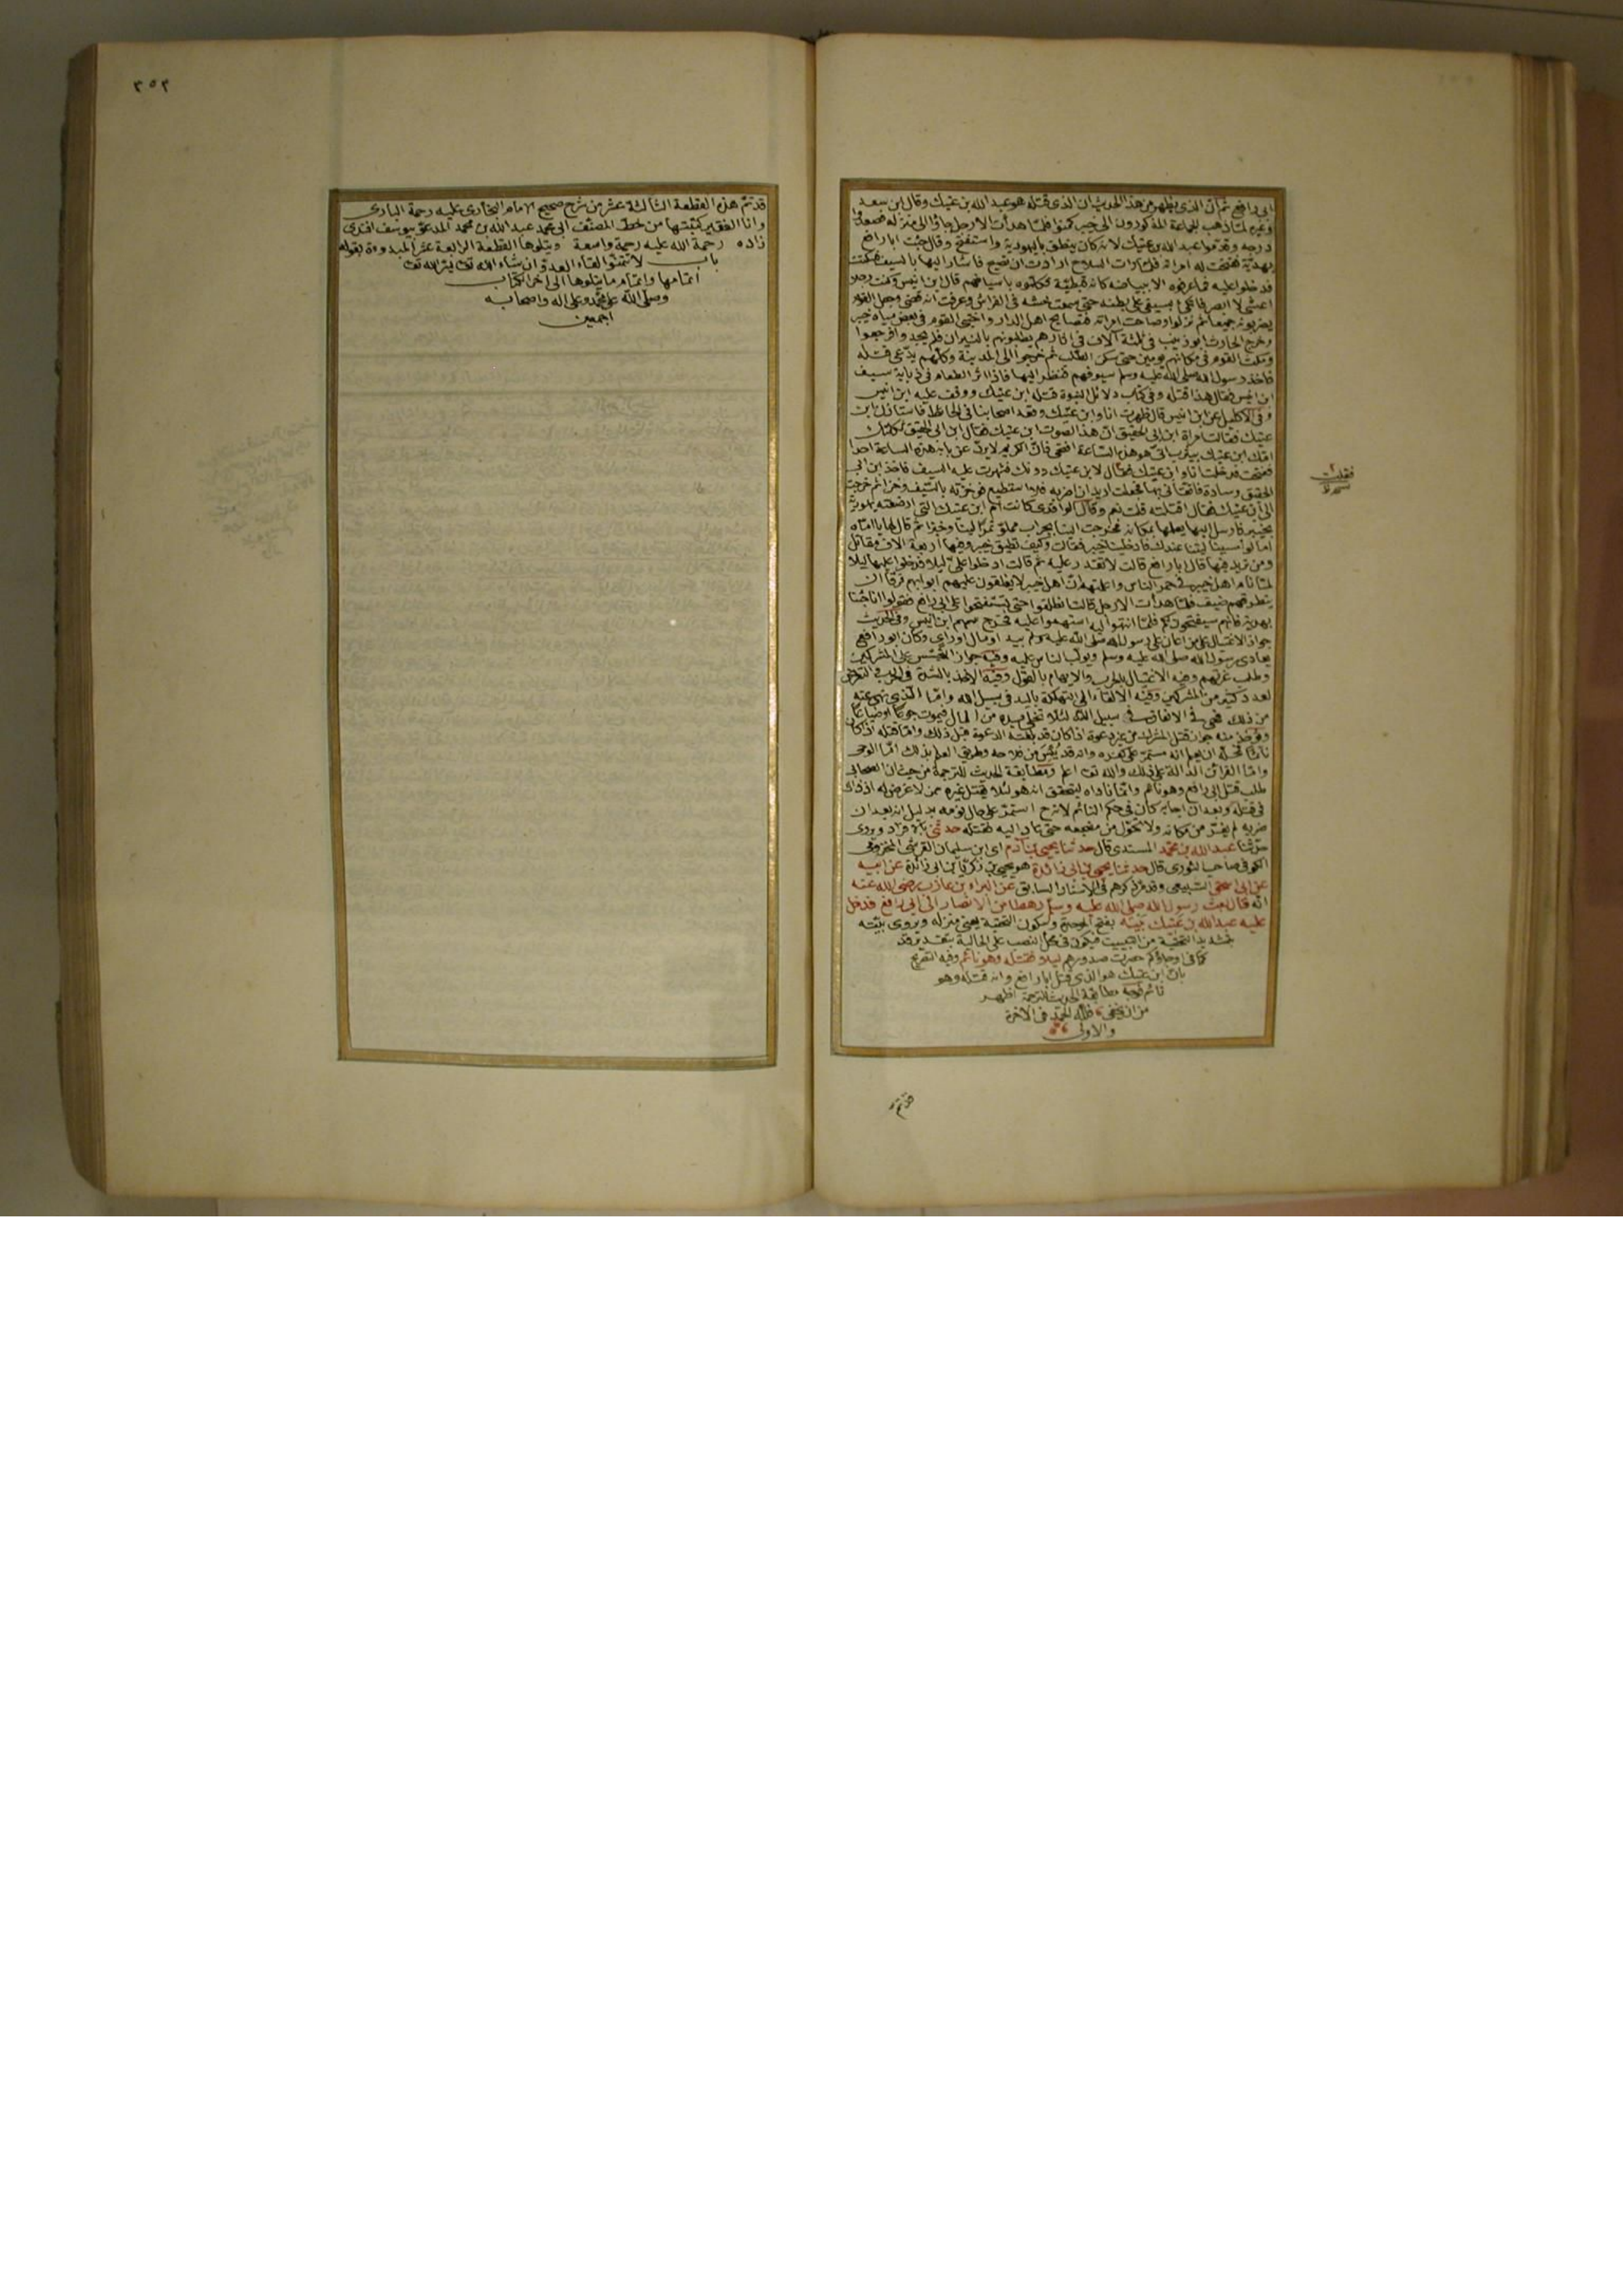 ابى رافع ثم ان الذى يظهر من هذا الحديث ان الذى قتله هو عبد الله بن عتيك وقال ابن سعد
وغيره لما ذهب الجماعة المذكورون الى خيبر كمنوا فلما هدأت الارجل جاؤا الى منزله فصعدوا
درجه وقدموا عبد الله بن عتيك لانه كان ينطق باليهودية واستفتح وقال جئت ابا رافع
بهدية ففتحت له امراته فلما رات السلاح ارادت ان تصيح فاشار اليها بالسيف فسكتت
فدخلوا عليه فما عرفوه الا ببياضه كانه قبطية فعلوه باسيافهم قال ابن انيس وكنت رجلا
اعشى لا ابصر فاتكئ بسيفى على بطنه حتى سمعت خشه فى الفراش وعرفت انه قضى وجعل القوم
يضربونه جميعا ثم نزلوا وصاحت امراته فتصايح اهل الدار واختبى القوم فى بعض مياه خيبر
وخرج الحارث ابو زينب فى ثلثة آلاف فى اثارهم يطلبونهم بالنيران فلم يجدوا فرجعوا
ومكث القوم فى مكانهم يومين حتى سكن الطلب ثم خرجوا الى المدينة وكلهم يدعى قتله
فاخذ رسول الله صلى الله عليه وسلم سيوفهم فنظر اليها فاذا اثر الطعام فى ذبابة سيف
ابن انيس فقال هذا قتله وفى كتاب دلائل النبوة قتله ابن عتيك ووقف عليه ابن انيس
وفى الاكليل عن ابن انيس قال ظهرت انا وابن عتيك وقعد اصحابنا فى الحائط فاستاذن ابن
عتيك فقالت امراة ابن ابى الحقيق ان هذا لصوت ابن عتيك فقال ابن ابى الحقيق ثكلتك
امك ابن عتيك بيثرب انى هو هذه الساعة افتحى فان الكريم لا يرد عن بابه هذه الساعة احدا
ففتحت فدخلت انا وابن عتيك فقال لابن عتيك دونك فشهرت عليه السيف فاخذ ابن ابى
الحقيق وسادة فاتقانى بها فجعلت اريد ان اضربه فلا استطيع فوخزته بالسيف وخزا ثم خرجت
الى ابن عتيك فقال اقتلته قلت نعم وقال الواقدى كانت ام ابن عتيك التى ارضعته يهودية
بخيبر فارسل اليها يعلمها بمكانه فخرجت الينا بجراب مملو تمرا لينا وخبزا ثم قال لها يا اماه
اما لو امسينا لبتنا عندك فادخلينا خيبر فقالت وكيف تطيق خيبر وفيها اربعة الاف مقاتل
ومن تريد فيها قال ابا رافع قالت لا تقدر عليه ثم قالت ادخلوا على ليلا فدخلوا عليها ليلا
لما نام اهل خيبر فى خمر الناس واعلمتهم ان اهل خيبر لا يغلقون عليهم ابوابهم فرقا ان
يتطرقهم ضيف فلما هدأت الارجل قالت انطلقوا حتى تستفتحوا على ابى رافع فقولوا انا جئنا
بهدية فانهم سيفتحون لكم فلما انتهوا اليه استهموا عليه فخرج سهم ابن انيس وفى الحديث
جواز الاغتيال على من اعان على رسول الله صلى الله عليه وسلم بيد او مال او راى وكان ابو رافع
يعادى رسول الله صلى الله عليه وسلم ويولب الناس عليه وفيه جواز التجسس على المشركين
وطلب غرتهم وفيه الاغتيال بالحرب والايهام بالقول وفيه الاخذ بالشدة فى الحرب والتعرض
لعدد كثير من المشركين وفيه الالقاء الى التهلكة باليد فى سبيل الله واما الذى نهى عنه
من ذلك فهى فى الانفاق فى سبيل الله لئلا تخلى يده من المال فيموت جوعا او ضياعا
ويؤخذ منه جواز قتل المشرك من غير دعوة اذا كان قد بلغته الدعوة قبل ذلك واما قتله اذا كا
نائما فمحله ان يعلم انه مستمر على كفره وانه قد يئس من فلاحه وطريق العلم بذلك اما الوحى
واما القرائن الدالة على ذلك والله تعا اعلم ومطابقة الحديث للترجمة من حيث ان الصحابى
طلب قتل ابى رافع وهو نائم وانما ناداه ليتحقق انه هو لئلا يقتل غيره ممن لا غرض له اذ ذاك
فى قتله وبعد ان اجابه كان فى حكم النائم لانه ح استمر على حال نومه بدليل انه بعد ان
ضربه لم يفر من مكانه ولا تحول من مضجعه حتى عاد اليه فقتله حدثنى بالافراد ويروى
حدثنا عبد الله بن محمد المسندى قال حدثنا يحيى بن آدم اى ابن سليمان القرشى المخزومى
الكوفى صاحب الثورى قال حدثنا يحيى بن ابى زائدة هو يحيى بن زكريا بن ابى زائدة عن ابيه
عن ابى اسحق السبيعى وقد مر ذكرهم فى الاسناد السابق عن البراء بن عازب رضى الله عنه
انه قال بعث رسول الله صلى الله عليه وسلم رهطا من الانصار الى ابى رافع فدخل
عليه عبد الله بن عتيك بيته بفتح الموحدة وسكون التحتية يعنى منزله ويروى بيته
بتشديد التحتية من التبييت فيكون فى محل النصب على الحالية بتقدير قد
كما فى او جاؤكم حصرت صدورهم ليلا فقتله وهو نائم وفيه التصريح
بان ابن عتيك هو الذى قتل ابا رافع وانه قتله وهو
نائم فوجه مطابقة الحديث للترجمة اظهر
من ان يخفى فلله الحمد فى الاخرة
والاولى
قد تم
فقلت
٣٥٣
قد تم هذه القطعة الثالثة عشر من شرح صحيح الامام البخارى عليه رحمة البارى
وانا الفقير كتبتها من خط المصنف ابى محمد عبد الله بن محمد المدعو بيوسف افندى
زاده رحمة الله عليه رحمة واسعة ويتلوها القطعة الرابعة عشر المبدوءة بقوله
باب لا تتمنوا لقاء العدو ان شاء الله تعا يسر الله تعا
اتمامها واتمام ما يتلوها الى اخر الكتاب
وصلى الله على محمد وعلى اله واصحابه
اجمعين